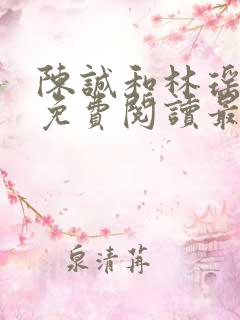 陳誠和林
免費閱讀最
泉清苒